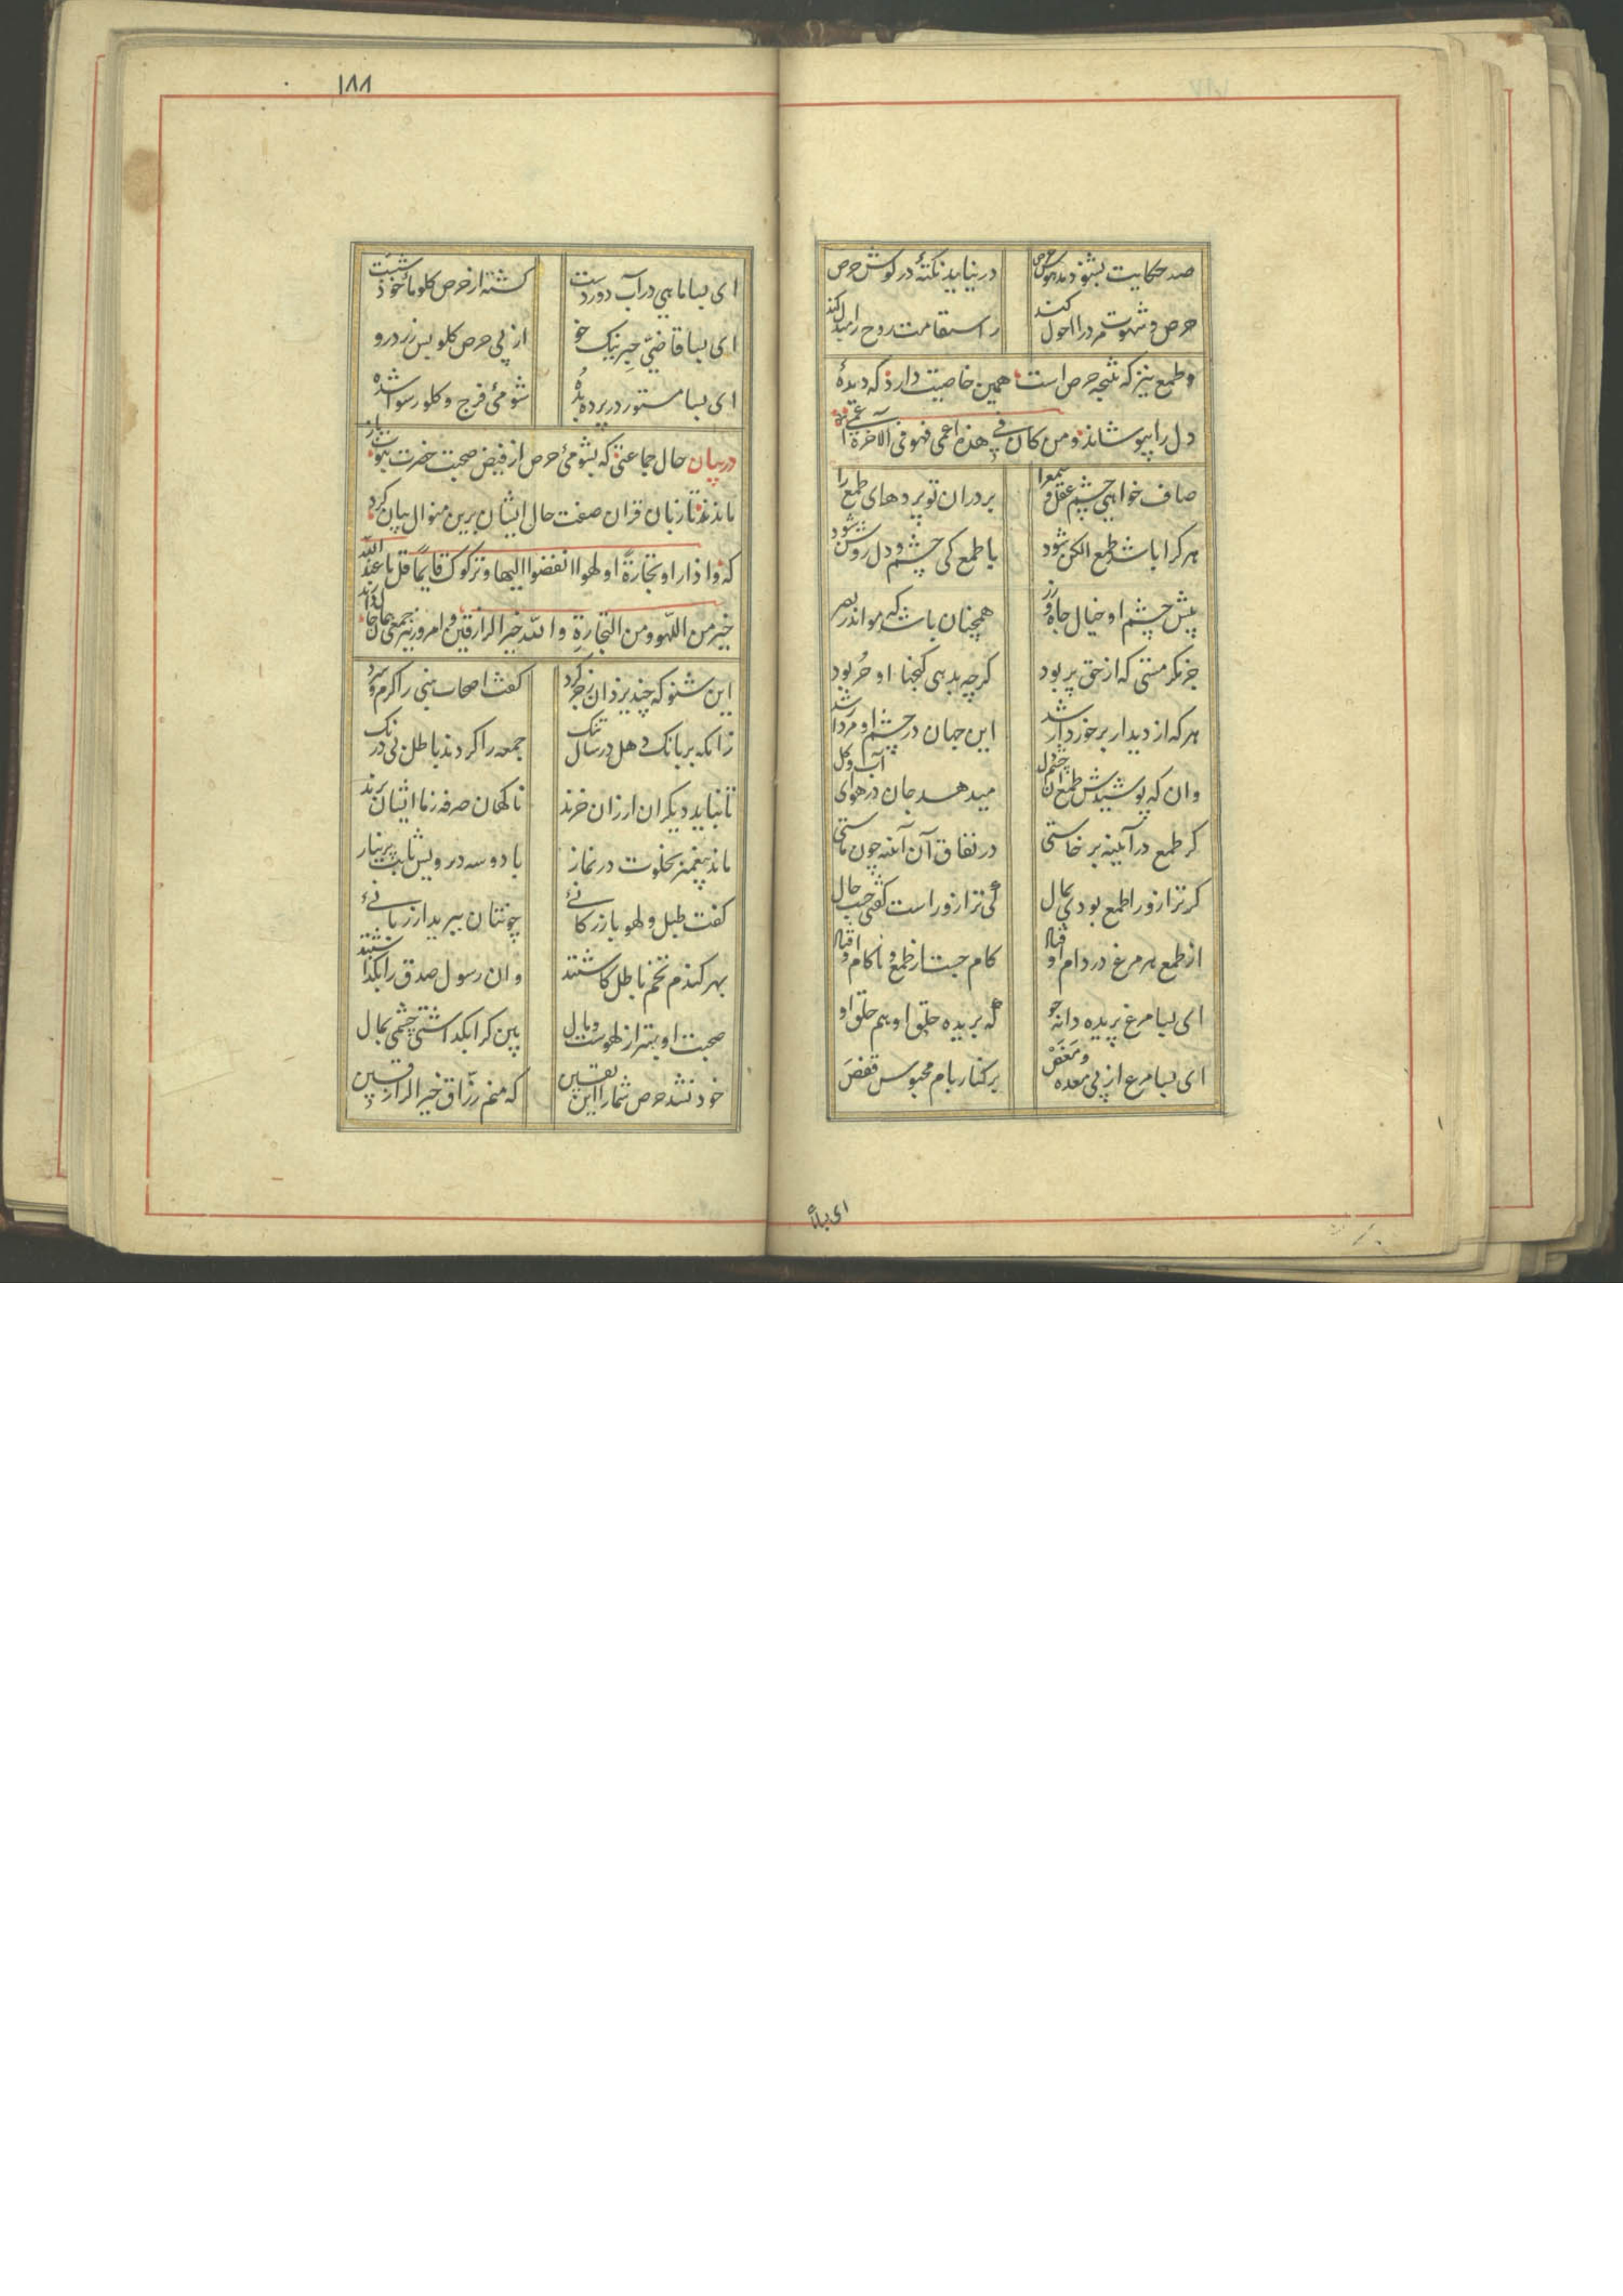 صد حکایت بشنود مدهوش حرص    در نیاید نکتهٔ در کوش حرص
حرص و شهوت مرد را احول کند    ز استقامت روح را مبدل کند
و طمع نیز که نتیجه حرص است همین خاصیت دارد که دیدهٔ
دل را بپوشاند و من کان فی هذه اعمی فهو فی الآخرة اعمی
صاف خواهی چشم عقل و سمع را    بردران تو پردهای طمع را
هر کرا باشد طمع الکن شود    با طمع کی چشم و دل روشن شود
پیش چشم او خیال جاه و زر    همچنان باشد که مو اندر بصر
جز مکر مستی که از حق پر بود    کرچه بدهی کنجها او حُر بود
هر که از دیدار برخوردار شد    این جهان در چشم او مردار شد
وان که پوشیدش طمع آن چشم دل    میدهد جان در هوای آب و کل
کر طمع در آیینه برخاستی    در نفاق آن آینه چون ماستی
کر ترازو را طمع بودی بمال    کی ترازو راست کفتی حسب حال
از طمع هر مرغ در دام اوفتاد    کام جست از طمع و ناکام اوفتاد
ای بسا مرغ پریده دانه جو    که بریده حلق او هم حلق او
ای بسا مرغ از پی معده و مَغَصْ    بر کنار بام محبوس قفصَ
ای بسا
١٨٨
ای بسا ماهی در آب دوردست    کشته از حرص کلو مأخوذ شست
ای بسا قاضیّ حِبر نیک خو    از پی حرص کلو بس زردرو
ای بسا مستور در پرده بُده    شومئ فرج و کلو رسوا شده
در بیان حال جماعتی که بشومئ حرص از فیض صحبت حضرت نبوت باز
ماندند تا زبان قران صفت حال ایشان برین منوال بیان کرد
که و اذا راو تجارةً او لهوا انفضوا الیها و ترکوک قایمًا قل ما عند الله
خیر من اللّهو و من التجارةِ والله خیر الرازقین و امروز نیز جمعی
این شنو که چند یزدان زجر کرد    کفت اصحاب نبی را کرم و سرد
زانکه بر بانک دهل در سال تنک    جمعه را کردند باطل بی درنک
تا نباید دیکران ارزان خرند    ناکهان صرفه ز ما ایشان برند
ماند پیغمبر بخلوت در نماز    با دو سه درویش ثابت پرنیاز
کفت طبل و لهو بازرکانئ    چونتان ببرید از ربانئ
بهر کندم تخم باطل کاشتند    وان رسول صدق را بکذاشتند
صحبت او بهتر از لهوست و مال    بین کرا بکذاشتی چشمی بمال
خود نشد حرص شما را این یقین    که منم رزّاق خیر الرازقین